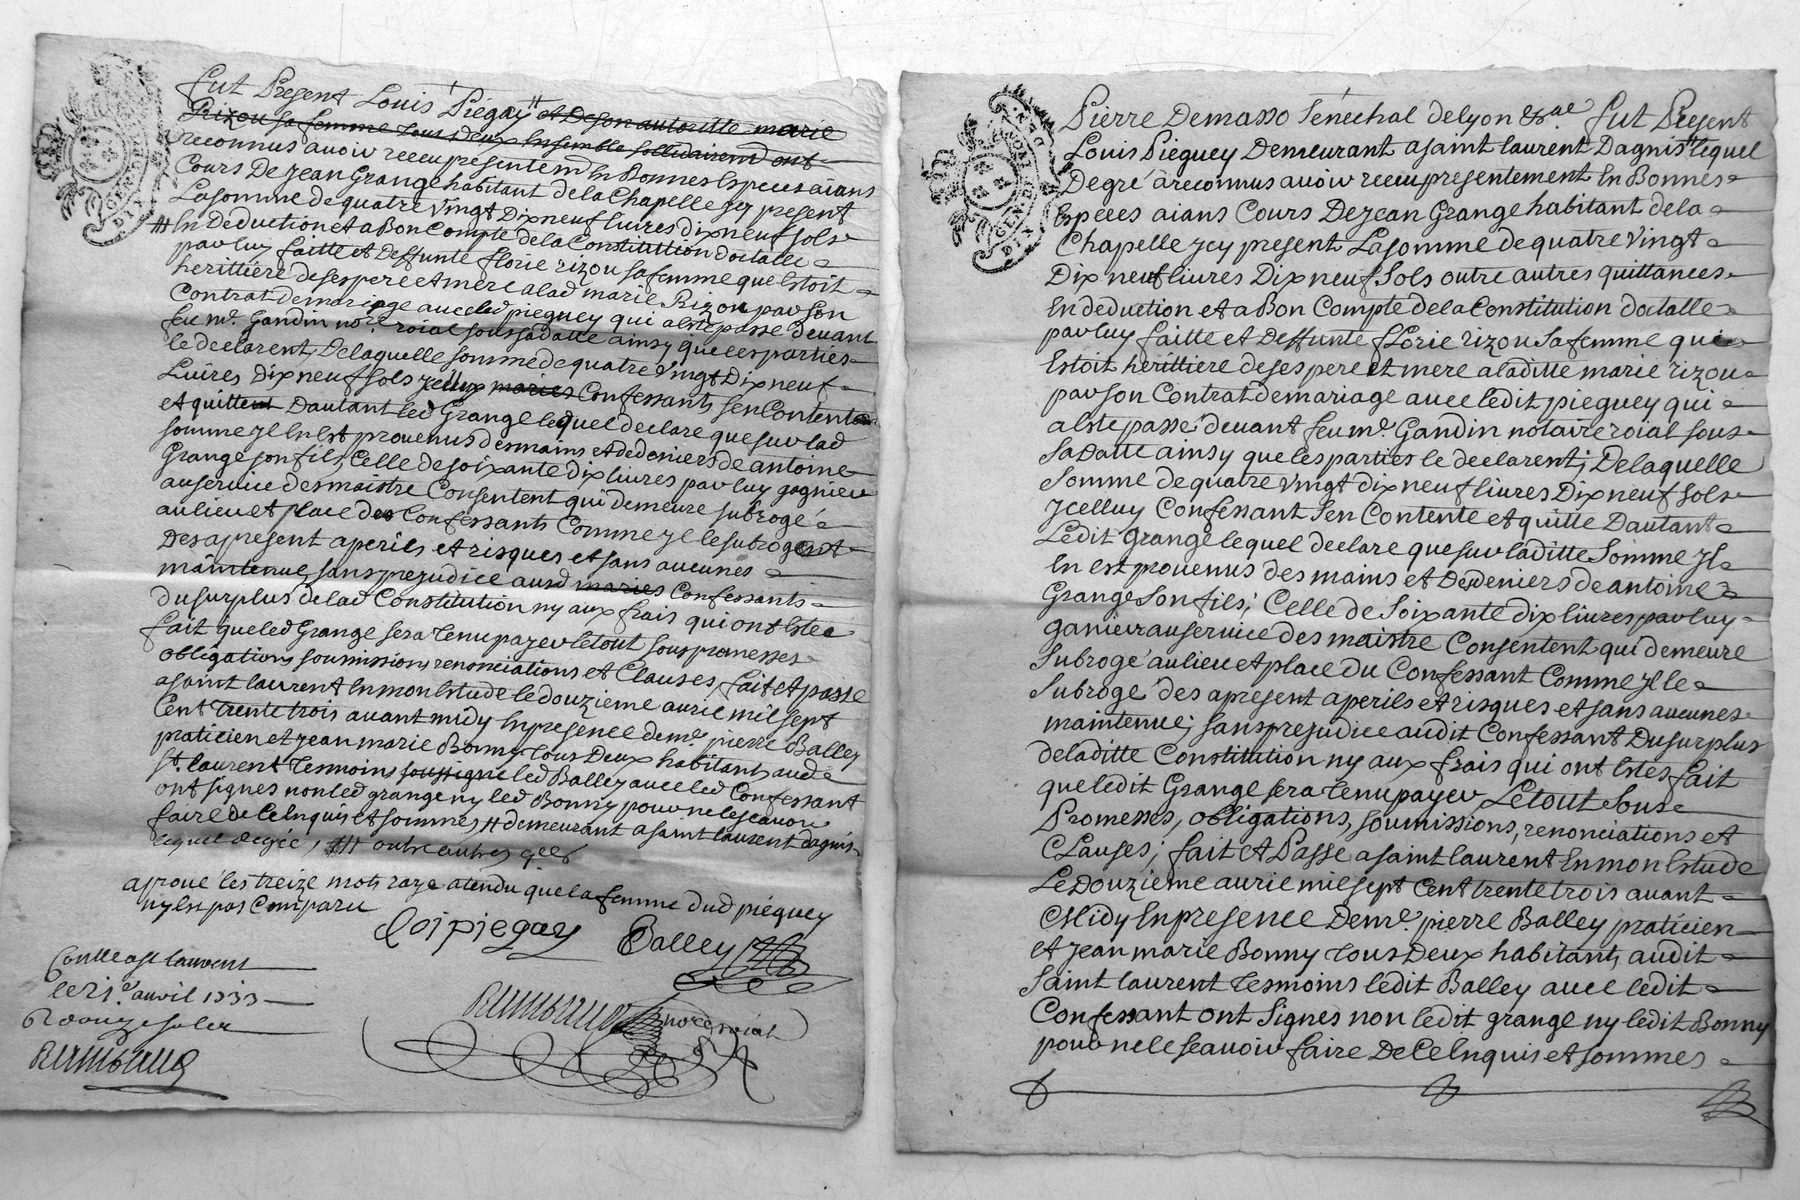 fut Present Louis Piegay # et de son autoritté marie
Rizou sa femme tous deux Ensemble sollidairem ont
reconnus avoir receu présentem En Bonnes Especes aians
Cours De Jean Grange habitant de la Chapelle Jcy present
La somme de quatre Vingt Dix neuf Livres dix neuf sols
#| En Deduction et a Bon Compte de la Constitution doctalle
par luy faitte et Deffunte florie rizou sa femme que Estoit
herittiére de ses pere et mere a lad marie Rizou par son
Contrat de mariage avec led pieguey qui a Esté passe devant
feu me. Gandin nore. roial sous sa datte ainsy que les parties
le declarent, De laquelle somme de quatre Vingt Dix neuf
Livres Dix neuf sols Jcelluy maries Confessants s'en Contente
et quittent Dautant led Grange lequel declare que sur lad
somme Jl En Est provenus des mains et de deniers de antoine
Grange son fils, Celle de soixante dix livres par luy gagnier
au service des maistre Consentent qui demeure subrogé
au lieu et place des Confessants Comme Jl le subrogent
Des apresent a perils et risques et sans aucunes
maintenue, sans prejudice ausd maries Confessants
Du surplus de lad Constitution ny aux frais qui ont Esté
fait que led Grange sera tenu payer le tout sous promesses
obligations, soumissions renonciations et Clauses, fait et passé
a saint laurent En mon Estude le douzieme avril mil sept
Cent trente trois avant midy En presence de me. pierre Balley
praticien et jean marie Bonny tous Deux habitants aud
st. laurent tesmoins soussigne led Balley avec led Confessant
ont signes non led grange ny led Bonny pour ne le scavoir
faire de Ce Enquis et sommes, # demeurant a saint laurent dagnis
lequel degré, #|| outre autres qces
aprouvé les treize mots rayé atendu que la femme dud piéguey
ny Est pas Comparu
Loi piegay Balley
Conlle a st laurent
le 21e. avril 1733
R douze sols
nore roial
Pierre Demasso Senechal de lyon &ae fut Present
Louis Pieguey Demeurant a saint laurent Dagnis lequel
Degré a reconnus avoir receu presentement En Bonnes
Especes aians Cours De Jean Grange habitant de la
Chapelle Jcy present La somme de quatre Vingt
Dix neuf livres Dix neuf Sols outre autres quittances
En deduction et a Bon Compte de la Constitution doctalle
par luy faitte et Deffunte florie rizou sa femme qui
Estoit hérittiere de ses pere Et mere a laditte marie rizou
par son Contrat de mariage avec ledit pieguey qui
a Esté passé devant feu me. Gandin notaire roial sous
sa Datte ainsy que les parties le declarent; De laquelle
Somme de quatre Vingt dix neuf livres Dix neuf sols
Jcelluy Confessant s'en Contente et quitte Dautant
Ledit Grange lequel declare que sur laditte Somme Jl
En est provenus des mains et De deniers de antoine
Grange son fils; Celle de Soixante dix livres par luy
ganier au service des maistre Consentent qui demeure
Subrogé au lieu et place du Confessant Comme Jl le
Subroge des apresent a perils et risques et sans aucunes
maintenue; sans prejudice audit Confessant Du surplus
de laditte Constitution ny aux frais qui ont Estés fait
que ledit Grange sera tenu payer Le tout Sous
Promesses, obligations, soumissions, renonciations et
Clauses; fait et Passé a saint laurent En mon Estude
Le Douzieme avril mil sept Cent trente trois avant
Midy En presence De me. pierre Balley praticien
et Jean marie Bonny tous Deux habitants audit
Saint laurent tesmoins ledit Balley avec ledit
Confessant ont Signes non ledit grange ny ledit Bonny
pour ne le scavoir faire De Ce Enquis et sommes